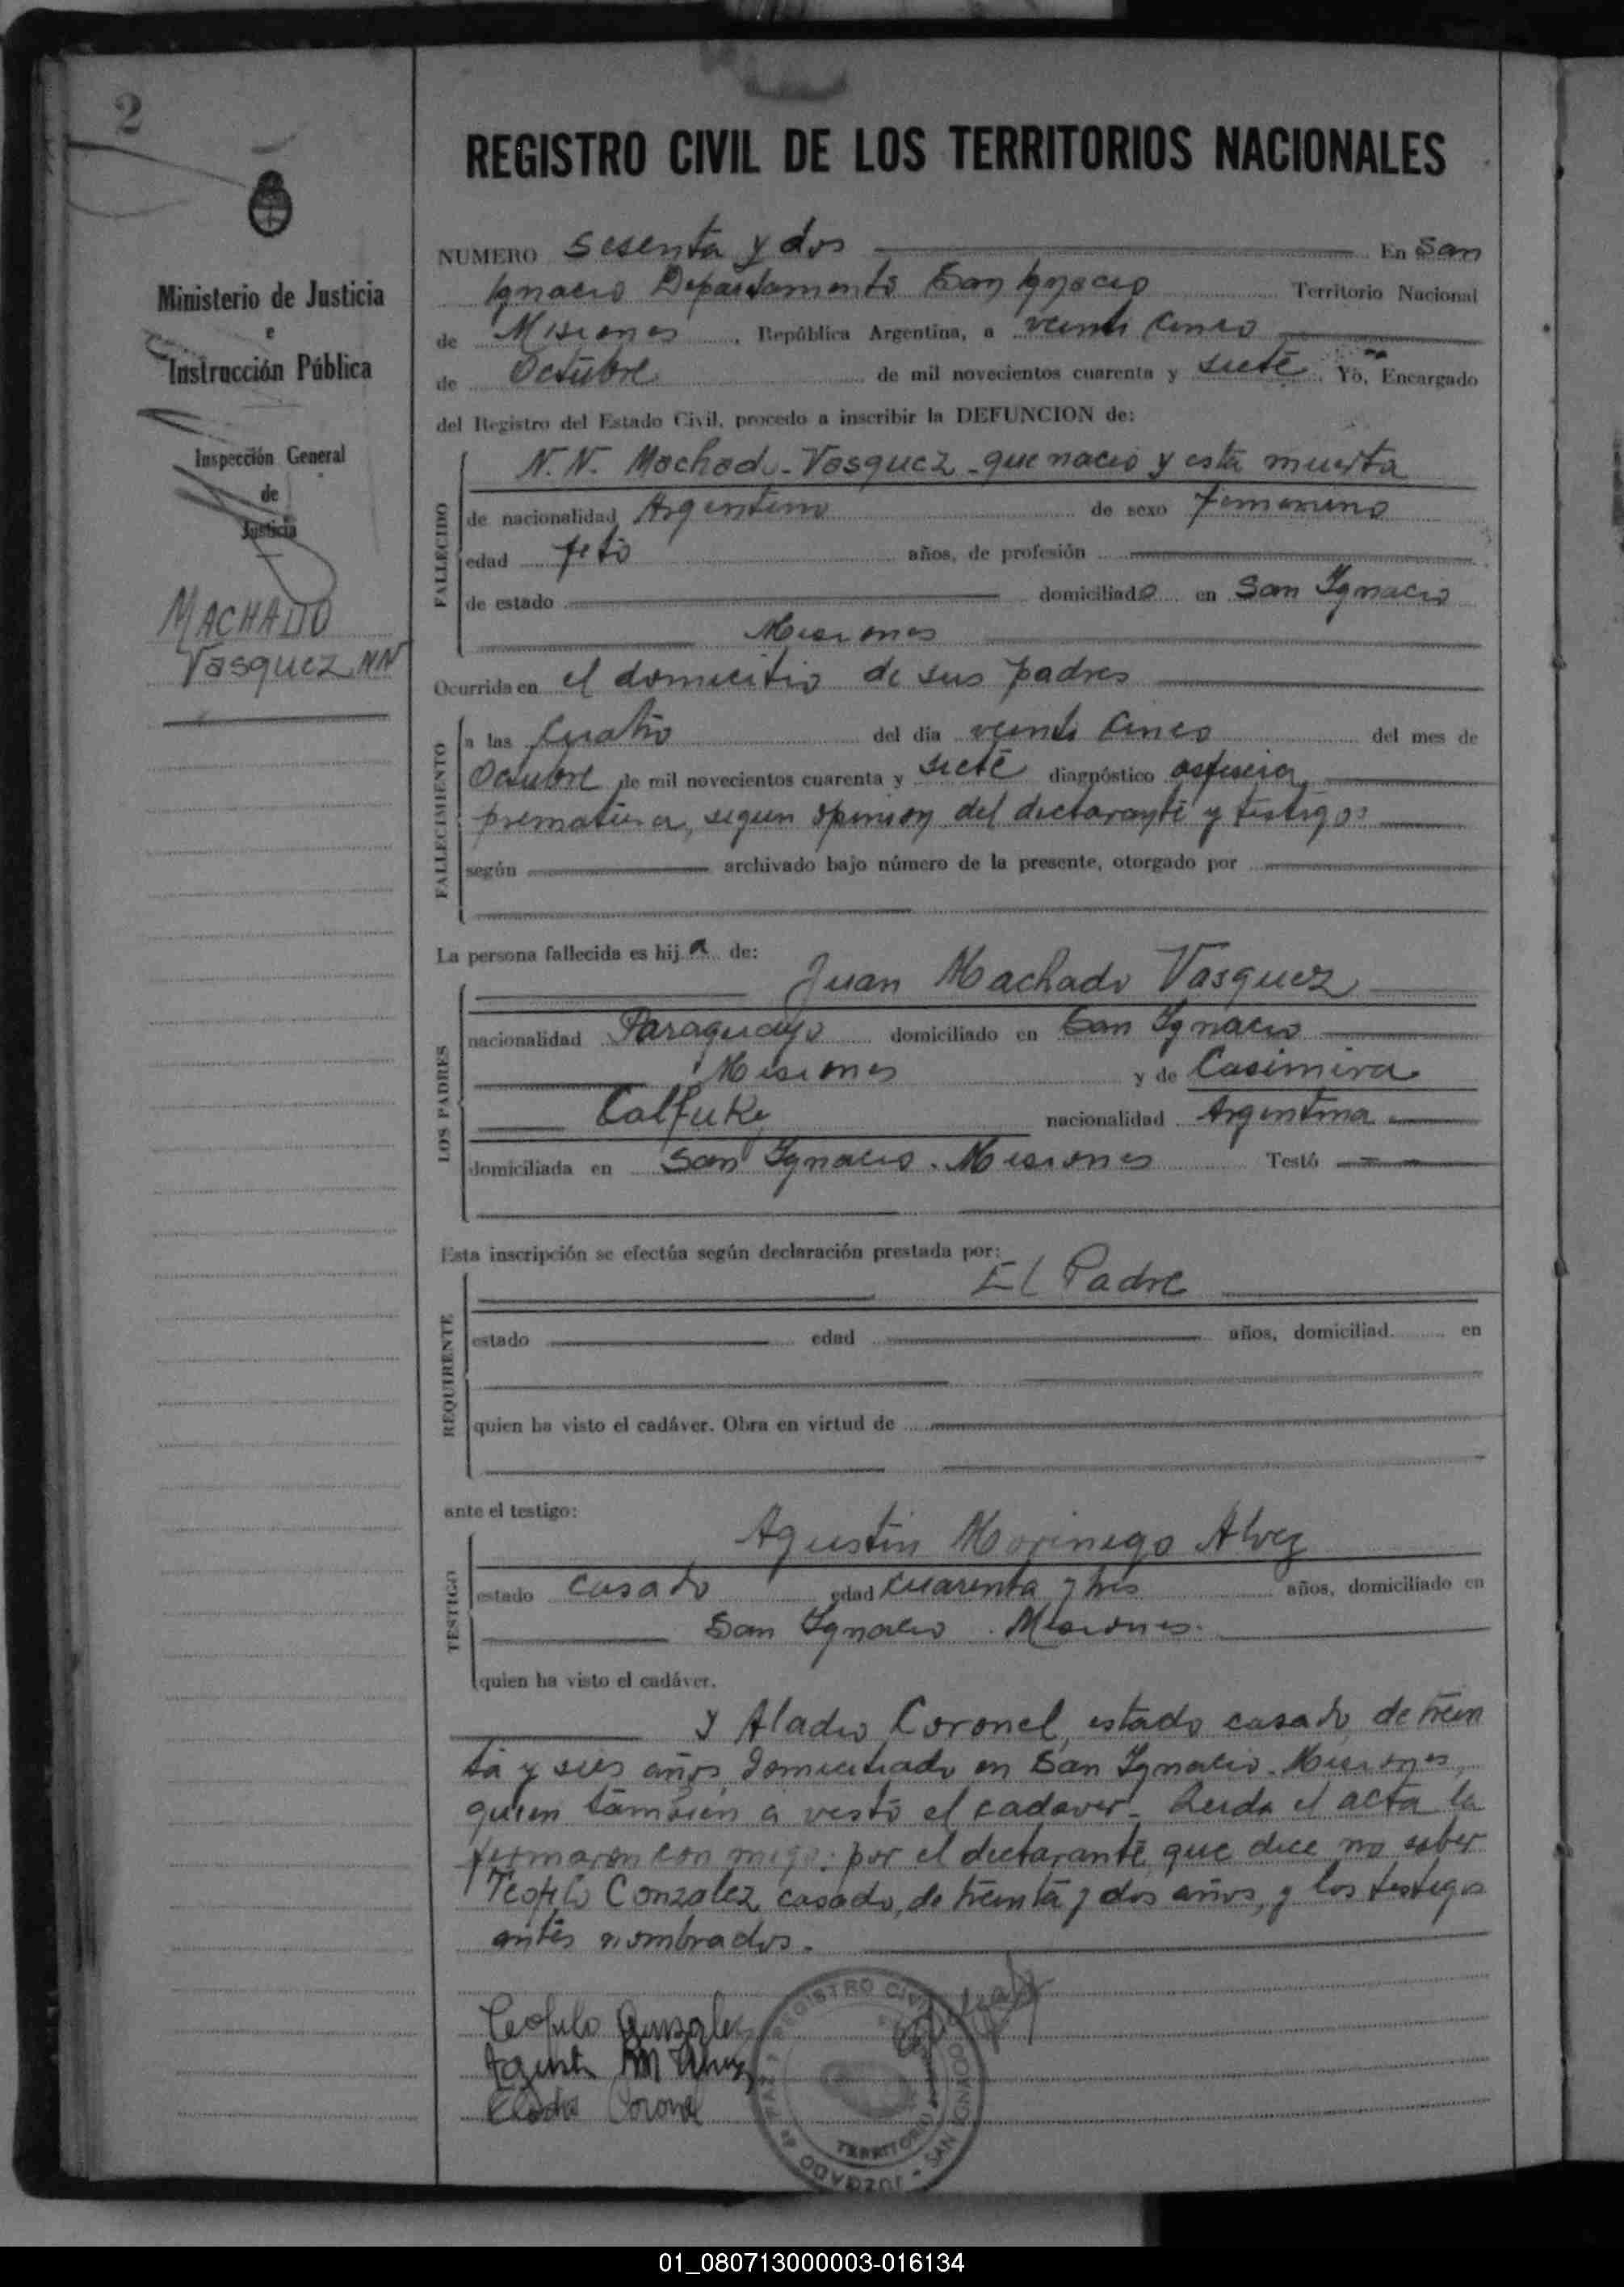 2
Ministerio de Justicia
e
Instrucción Pública
Inspección General
de
Justicia
MACHADO
Vasquez NN
REGISTRO CIVIL DE LOS TERRITORIOS NACIONALES
NUMERO Sesenta y dos En San
Ignacio Departamento San Ignacio Territorio Nacional
de Misiones, República Argentina, a veinti cinco
de Octubre de mil novecientos cuarenta y siete. Yo, Encargado
del Registro del Estado Civil, procedo a inscribir la DEFUNCION de:
FALLECIDO
N. N. Machado-Vasquez-que nacio y está muerta
de nacionalidad Argentino de sexo femenino
edad feto años, de profesión
de estado domiciliado en San Ignacio
Misiones
Ocurrida en el domicilio de sus padres
FALLECIMIENTO
a las Cuatro del día veinti cinco del mes de
Octubre de mil novecientos cuarenta y siete diagnóstico asfixia
prematura, segun opinion del declarante y testigos
según archivado bajo número de la presente, otorgado por
La persona fallecida es hija de:
LOS PADRES
Juan Machado Vasquez
nacionalidad Paraguayo domiciliado en San Ignacio
Misiones y de Casimira
nacionalidad Argentina
domiciliada en San Ignacio. Misiones Testó
Esta inscripción se efectúa según declaración prestada por:
REQUIRENTE
El Padre
estado edad años, domiciliad en
quien ha visto el cadáver. Obra en virtud de
ante el testigo:
TESTIGO
Agustin Morinego Alvez
estado casado edad cuarenta y tres años, domiciliado en
San Ignacio. Misiones.
quien ha visto el cadáver.
y Aladio Coronel, estado casado, de trein
ta y seis años, domiciliado en San Ignacio. Misiones,
quien tambien a visto el cadaver. Leida el acta la
firmaron con migo: por el declarante que dice no saber
Teofilo Conzalez casado, de treinta y dos años, y los testigos
antes nombrados.
Teofilo Gonzalez
Agustin M Alvez
Eladio Coronel
REGISTRO CIVIL
TERRITORIO
JUZGADO de PAZ - SAN IGNACIO
01_080713000003-016134